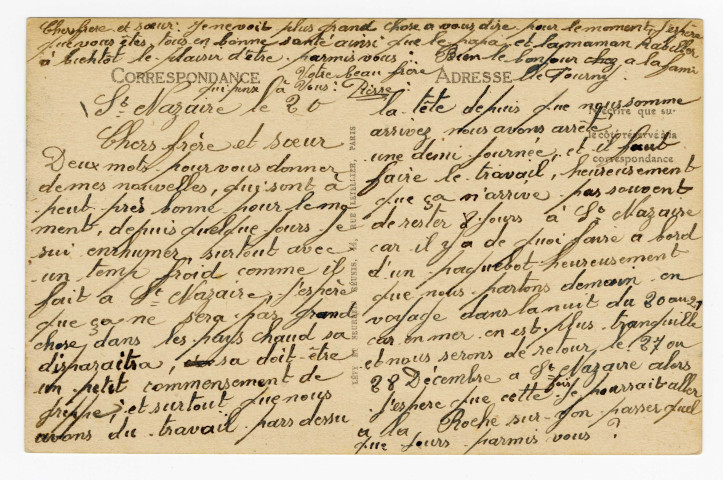 Chers frère et sœur : Je ne voit plus grand chose a vous dire pour le moment, j'espère
que vous êtes tous en bonne santé ainsi que le papa et la maman
à bientôt le plaisir d'être parmis vous. Bien le bonjour a la fami
Votre beau frère
qui pense à Vous : Pierre
CORRESPONDANCE
ADRESSE
St Nazaire le 20
Chers frère et sœur
Deux mots pour vous donner
de mes nouvelles, qui sont à
peut près bonne pour le mo-
ment, depuis quelque jours je
sui enrhumer surtout avec
un temp froid comme il
fait à St Nazaire, j'espère
que ça ne sera pas grand
chose, dans les pays chaud sa
disparaitra, sa doit être
un petit commensement de
grippe, et surtout que nous
avons du travail pars dessu
la tête depuis que nous somme
arrivez nous avons arrêter
une demi journée, et il faut
faire le travail, heureusement
que ça n'arrive pas souvent
de rester 8 jours à St Nazaire
car il y a de quoi faire a bord
d'un paquebot heureusement
que nous partons demain en
voyage dans la nuit du 20 au 21
car en mer on est plus tranquille
et nous serons de retour le 27 ou
28 Décembre a St Nazaire alors
j'espere que cette fois je pourrait aller
a la Roche sur Yon passer quel
que jours parmis vous ?
correspondance
LÉVY ET NEURDEIN RÉUNIS, 44, RUE LETELLIER, PARIS